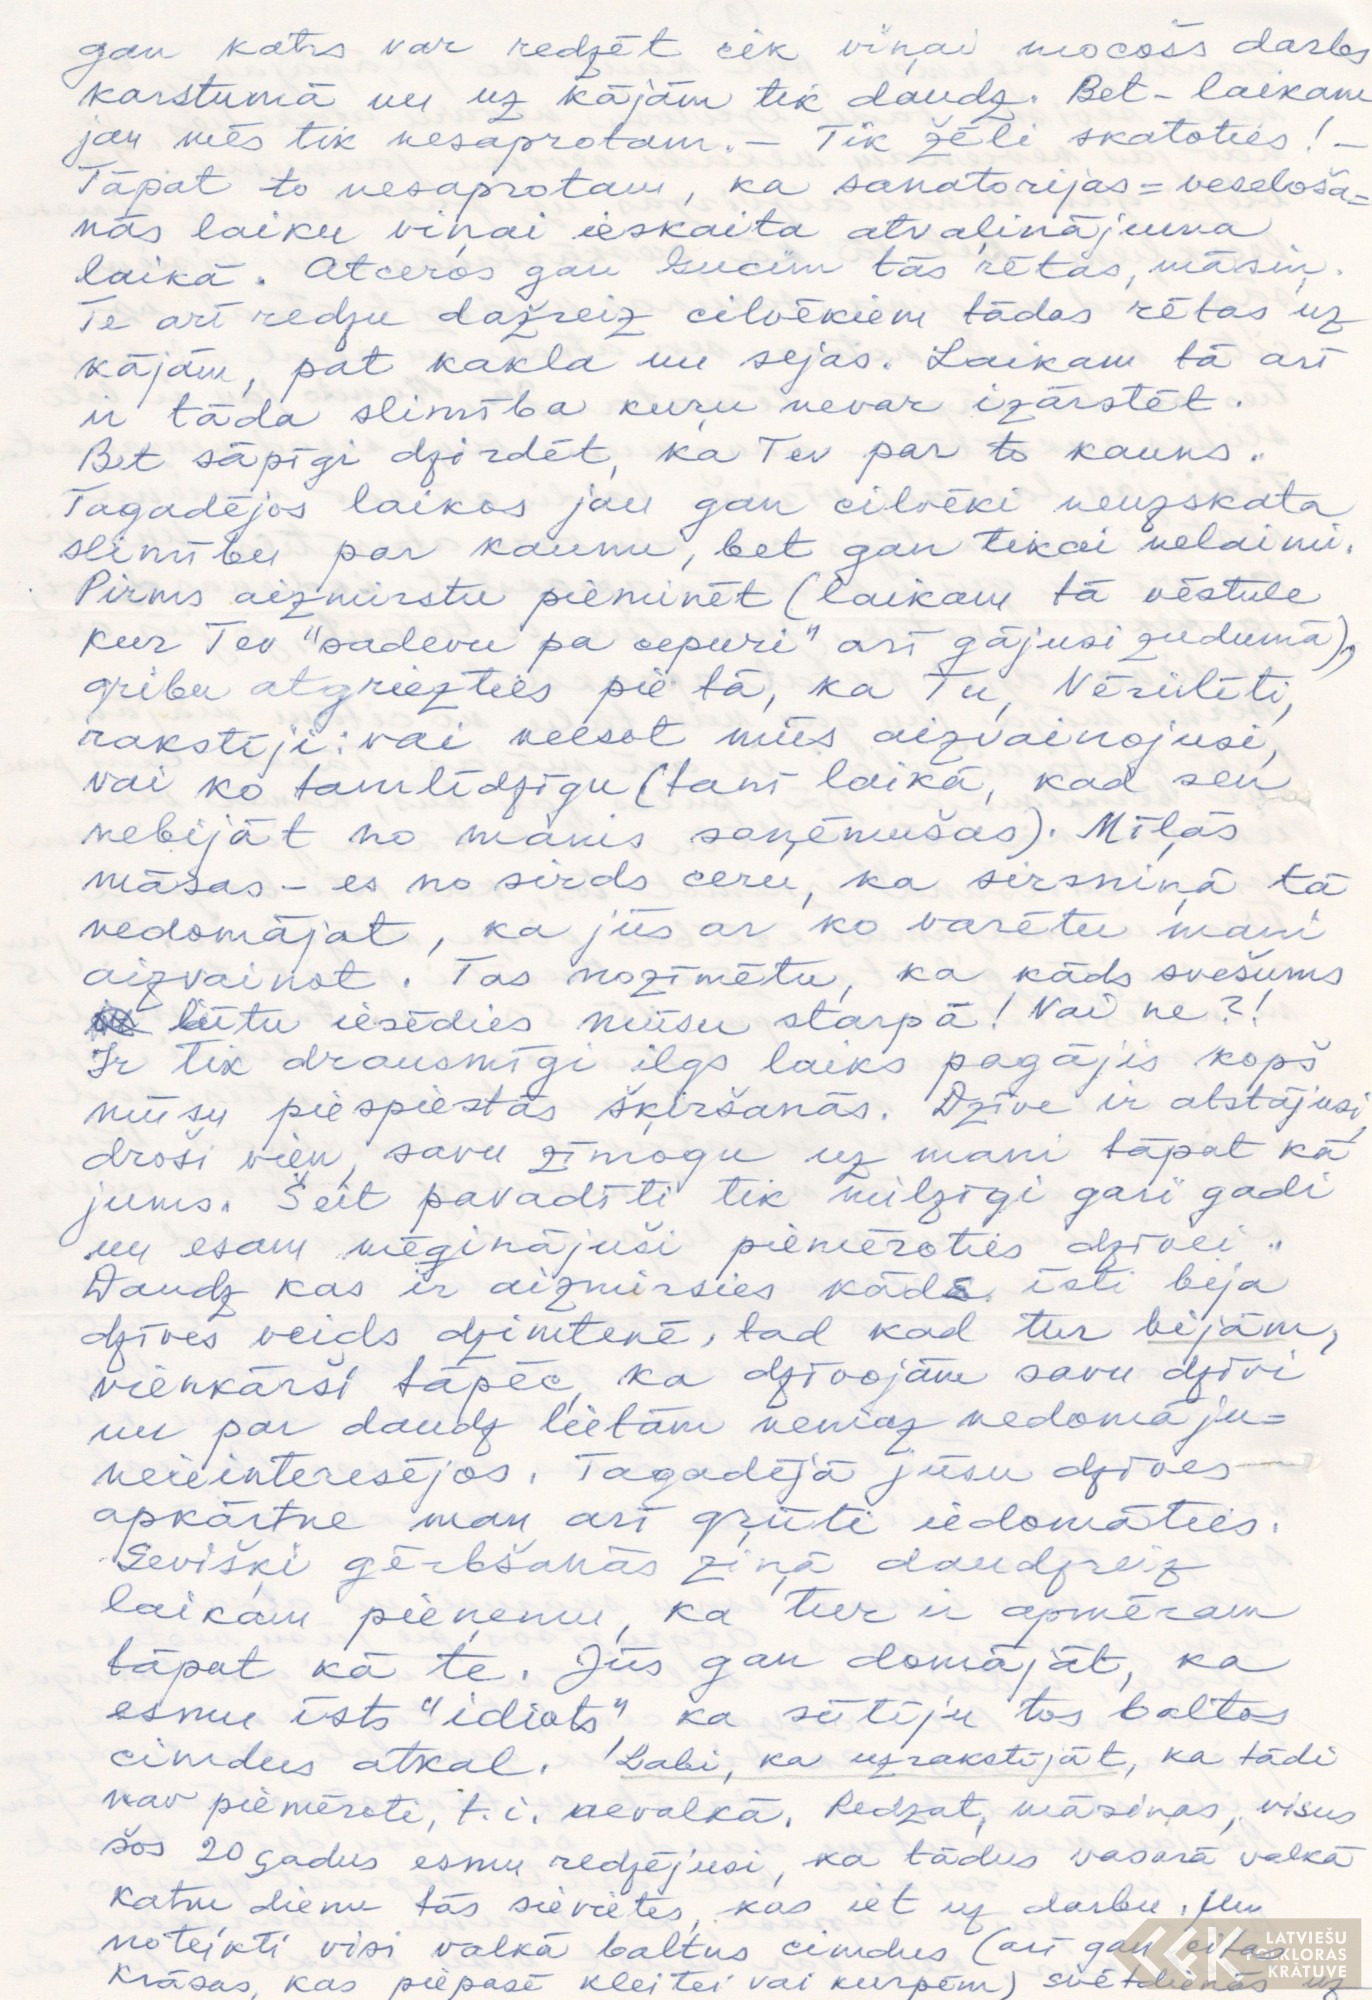 gan katrs var redzēt cik viņai mocošs darbs
karstumā un uz kājām tik daudz. Bet – laikam
jau mēs tik nesaprotam. – Tik žēli skatoties! –
Tāpat to nesaprotam, ka sanatorijas = veseloša=
nās laiku viņai ieskaita atvaļinājuma
laikā. Atceros gan Gucim tās rētas, māsiņ.
Te arī redzu dažreiz cilvēkiem tādas rētas uz
kājām, pat kakla un sejas. Laikam tā arī
ir tāda slimība kuŗu nevar izārstēt.
Bet sāpīgi dzirdēt, ka Tev par to kauns..
Tagadējos laikos jau gan cilvēki neuzskata
slimību par kaunu, bet gan tikai nelaimi.
Pirms aizmirstu pieminēt (laikam tā vēstule
kur Tev "sadevu pa cepuri" arī gājusi zudumā),
gribu atgriezties pie tā, ka Tu, Nērulīti,
rakstīji: vai neesot mūs aizvainojusi,
vai ko tamlīdzīgu (tanī laikā, kad sen
nebijāt no manis saņēmušas). Mīļās
māsas – es no sirds ceru, ka sirsniņā tā
nedomājat, ka jūs ar ko varētu mani
aizvainot. Tas nozīmētu, ka kāds svešums
būtu iesēdies mūsu starpā! Vai ne?!
Ir tik drausmīgi ilgs laiks pagājis kopš
mūsu piespiestās šķiršanās. Dzīve ir atstājusi,
droši vien, savu zīmogu uz mani tāpat kā
jums. Šeit pavadīti tik milzīgi gari gadi
un esam mēģinājuši piemēroties dzīvei..
Daudz kas ir aizmirsies kāds īsti bija
dzīves veids dzimtenē, tad kad tur bijām,
vienkārši tāpēc, ka dzīvojām savu dzīvi
un par daudz lietām nemaz nedomāju=
neieinteresējos. Tagadējā jūsu dzīves
apkārtne man arī grūti iedomāties.
Sevišķi gērbšanās ziņā daudzreiz
laikam pieņemu, ka tur ir apmēram
tāpat kā te. Jūs gan domājāt, ka
esmu īsts "idiots", ka sūtīju tos baltos
cimdus atkal. Labi, ka uzrakstījāt, ka tādi
nav piemēroti, t. i. nevalkā. Redzat, māsiņas, visus
šos 20 gadus esmu redzējusi, ka tādus vasarā valkā
katru dienu tās sievietes, kas iet uz darbu. Un
noteikti visi valkā baltus cimdus (arī gan citas
krāsas, kas piepasē kleitei vai kurpēm) svētdienās uz
LATVIEŠU
FOLKLORAS
KRĀTUVE